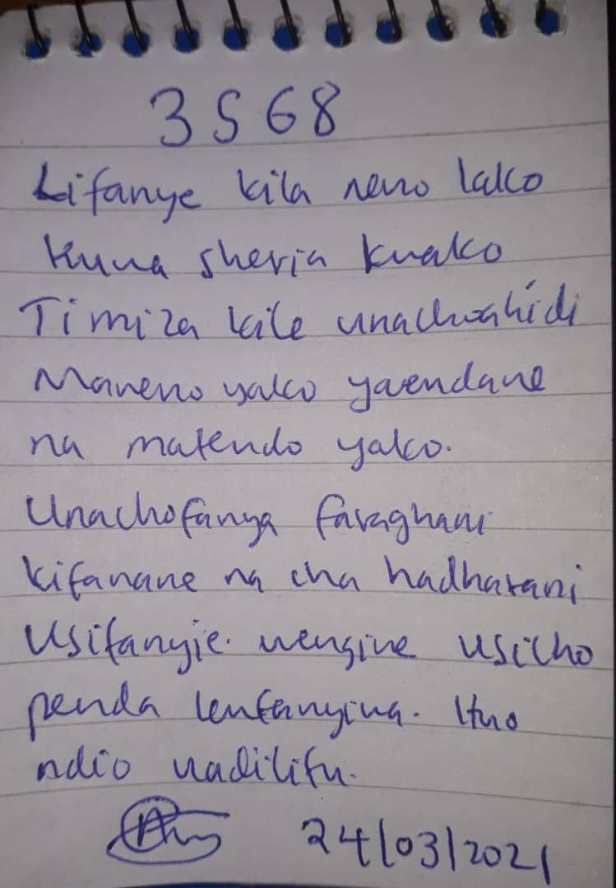 3568
Lifanye kila neno lako
Kuwa sheria kwako
Timiza kile unachoahidi
Maneno yako yaendane
na matendo yako.
Unachofanya faraghani
kifanane na cha hadharani
Usifanyie wengine usicho
penda kufanyiwa. Huo
ndio uadilifu.
24/03/2021